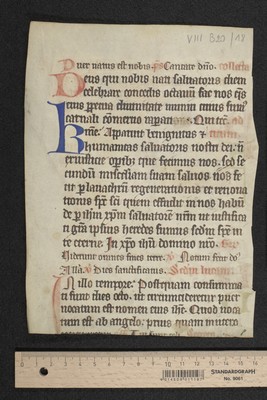 VIII B20/18
Puer natus est nobis. ps Cantate dno. collecta
Deus qui nobis nati saluatoris diem
celebrare concedis octauum fac nos qs
eius diuinitate muniri cuius sumus
carnali comercio reparati. Qui tecum. ad
me. Apparuit benignitas &
humanitas saluatoris nostri dei. n
ex iusticie opib; que fecimus nos. sed se
cundum miscdiam suam saluos nos fe
cit p lauachrum regenerationis et renoua
tionis sps sci quem effudit in nos habun
de p ihm xpm saluatorem nrm ut iustifica
ti gra ipsius heredes simus sedm spem ui
te eterne. In xpo ihu domino nro.
Viderunt omnes fines terre. Notum fecit do
Alla. Dies sanctificatus. Sedm lucam
In illo tempore. Postquam consummati
sunt dies octo. ut circumcideretur puer
uocatum est nomen eius ihc. Quod uoca
tum est ab angelo. prius quam in utero
STANDARDGRAPH
No. 9001